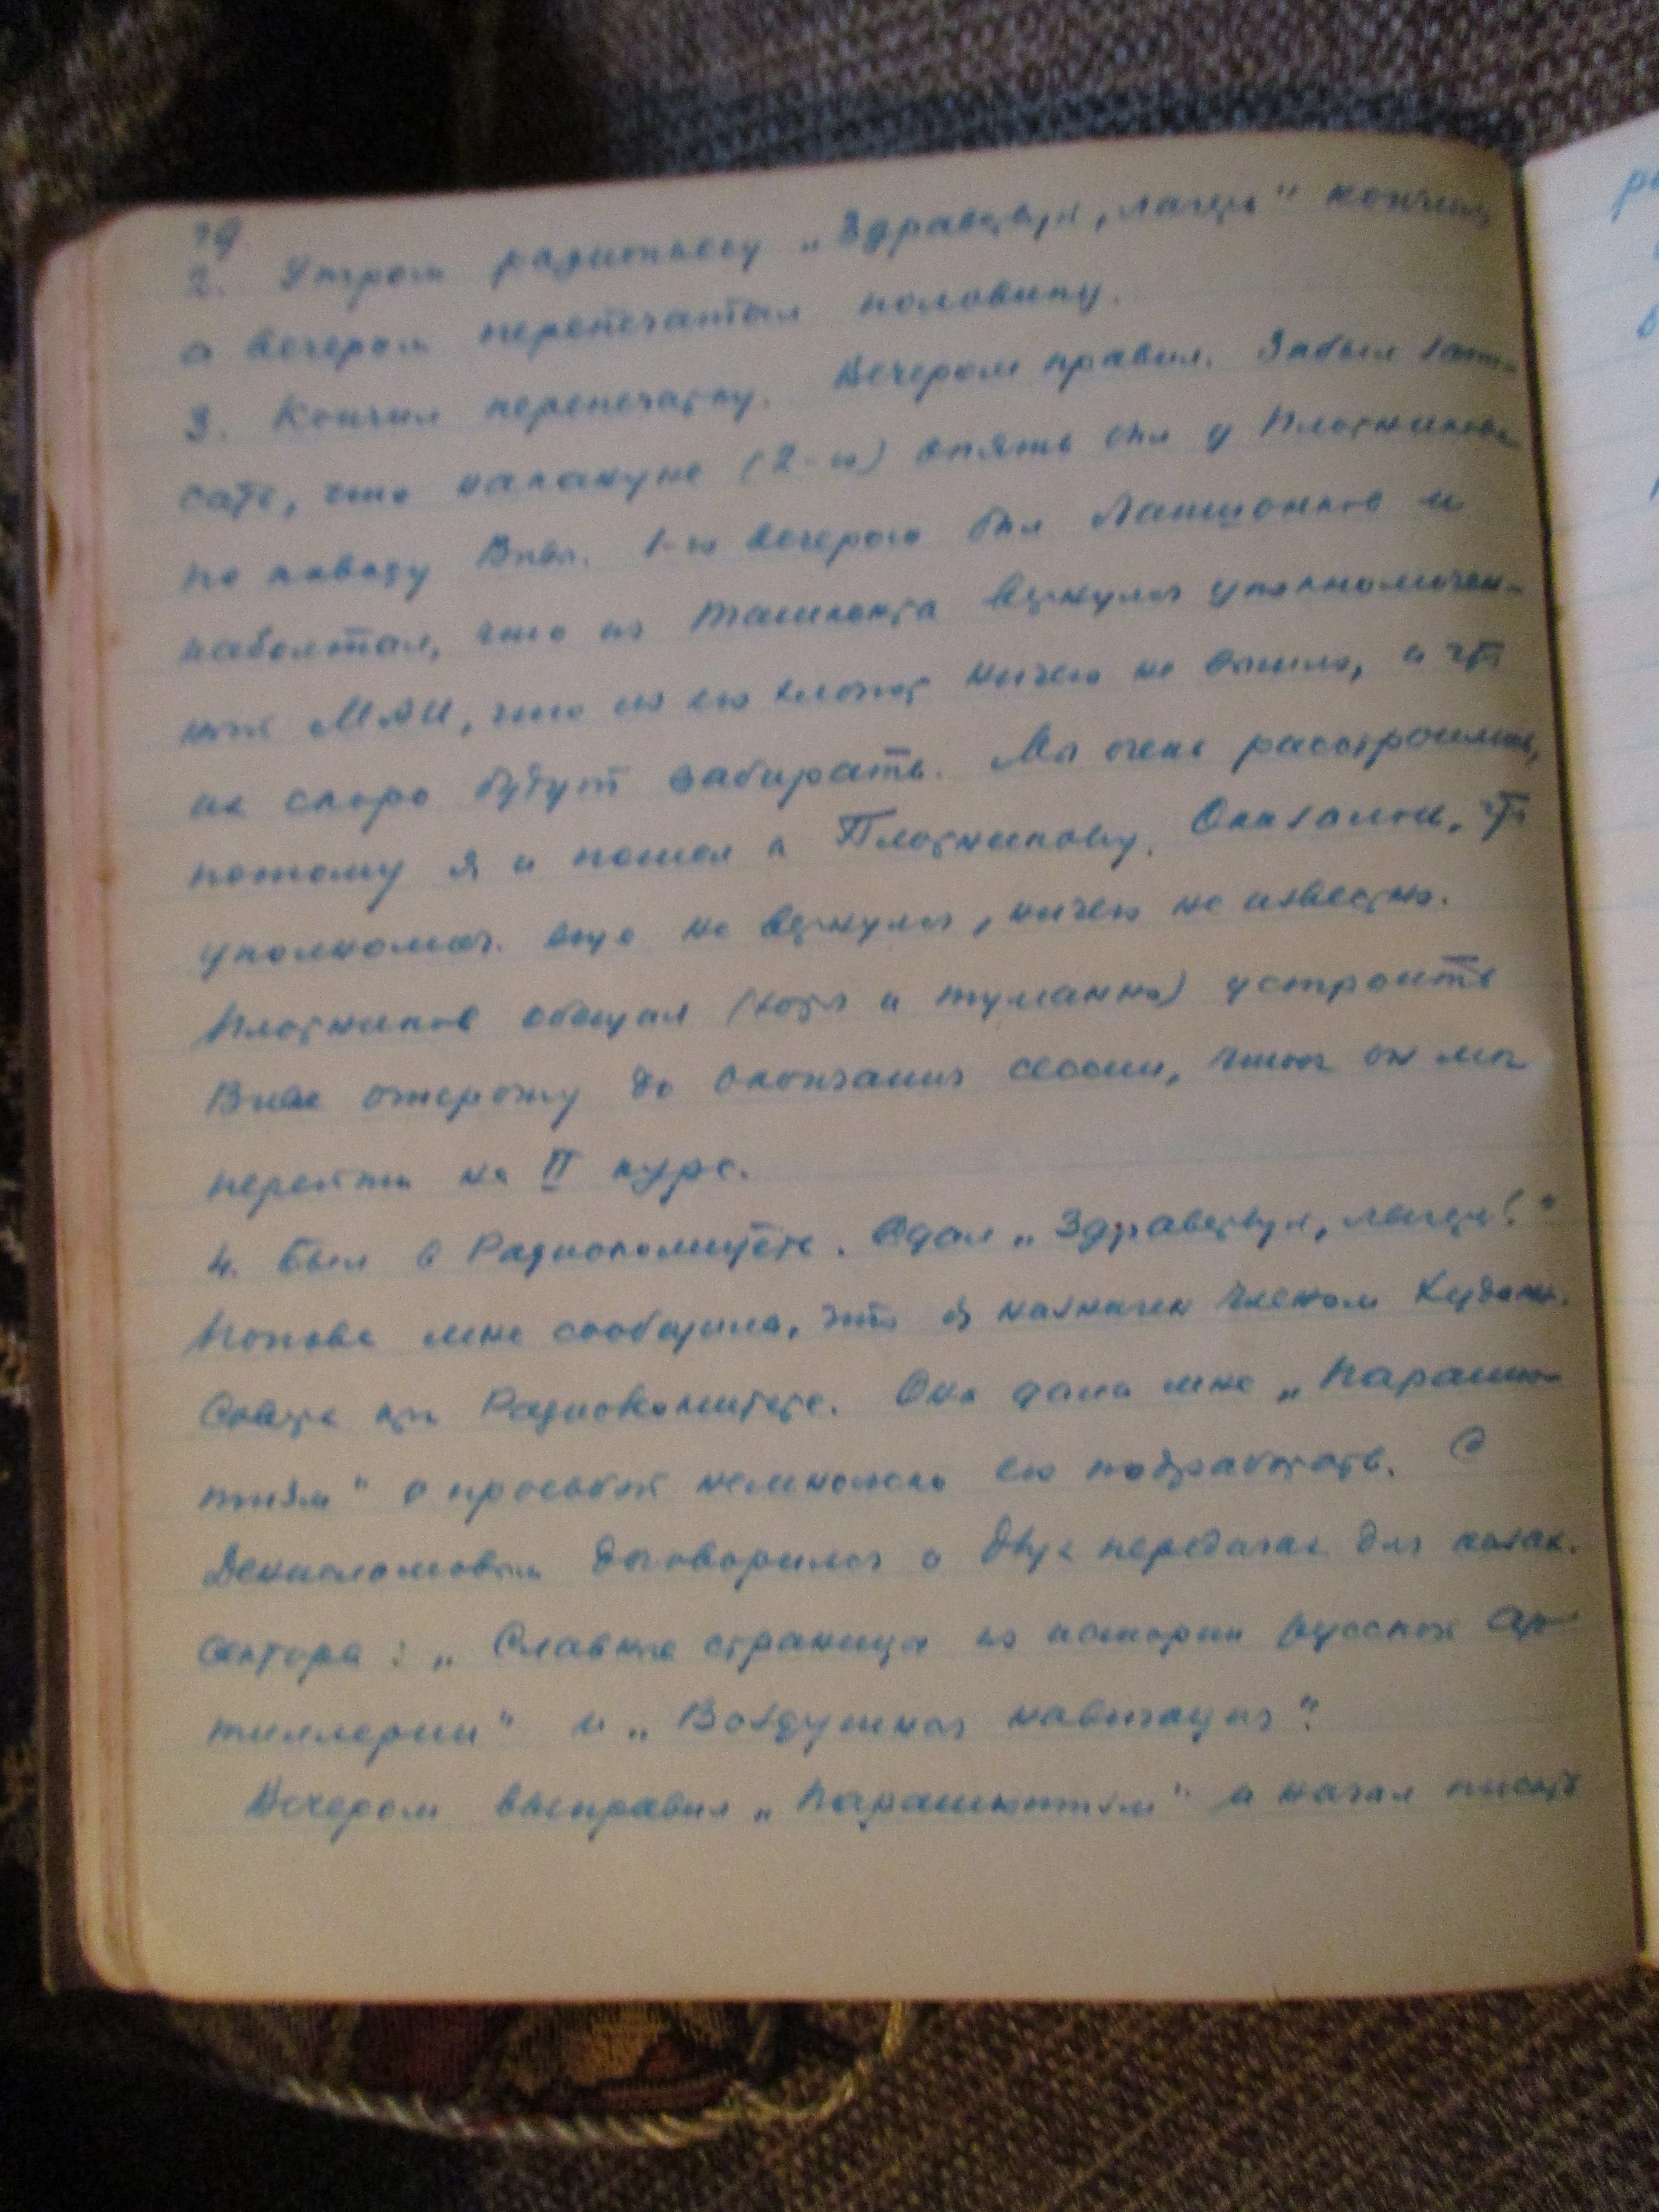 2. Утром радиопьесу „Здравствуй, лагерь" кончил,
а вечером перепечатал половину.
3. Кончил перепечатку. Вечером правил. Забыл запи-
сать, что накануне (2-го) опять был у Плотникова
по поводу Вивы. 1-го вечером был и
наболтал, что из Ташкента вернулся уполномочен-
ный МАИ, что из его хлопот ничего не вышло, и что
их скоро будут забирать. Мы очень расстроились,
потому я и пошел к Плотникову. Оказалось, что
уполномоч. еще не вернулся, ничего не известно.
Плотников обещал (хотя и туманно) устроить
Виве отсрочку до окончания сессии, чтоб он мог
перейти на II курс.
4. Был в Радиокомитете. Сдал „Здравствуй, лагерь!"
Попова мне сообщила, что я назначен членом Худож.
Совета при Радиокомитете. Она дала мне „Парашю-
тизм" с просьбой немножко его подработать. С
договорился о двух передачах для казах.
сектора: „Славные страницы из истории русской ар-
тиллерии" и „Воздушная навигация".
Вечером выправил „Парашютизм" и начал писать